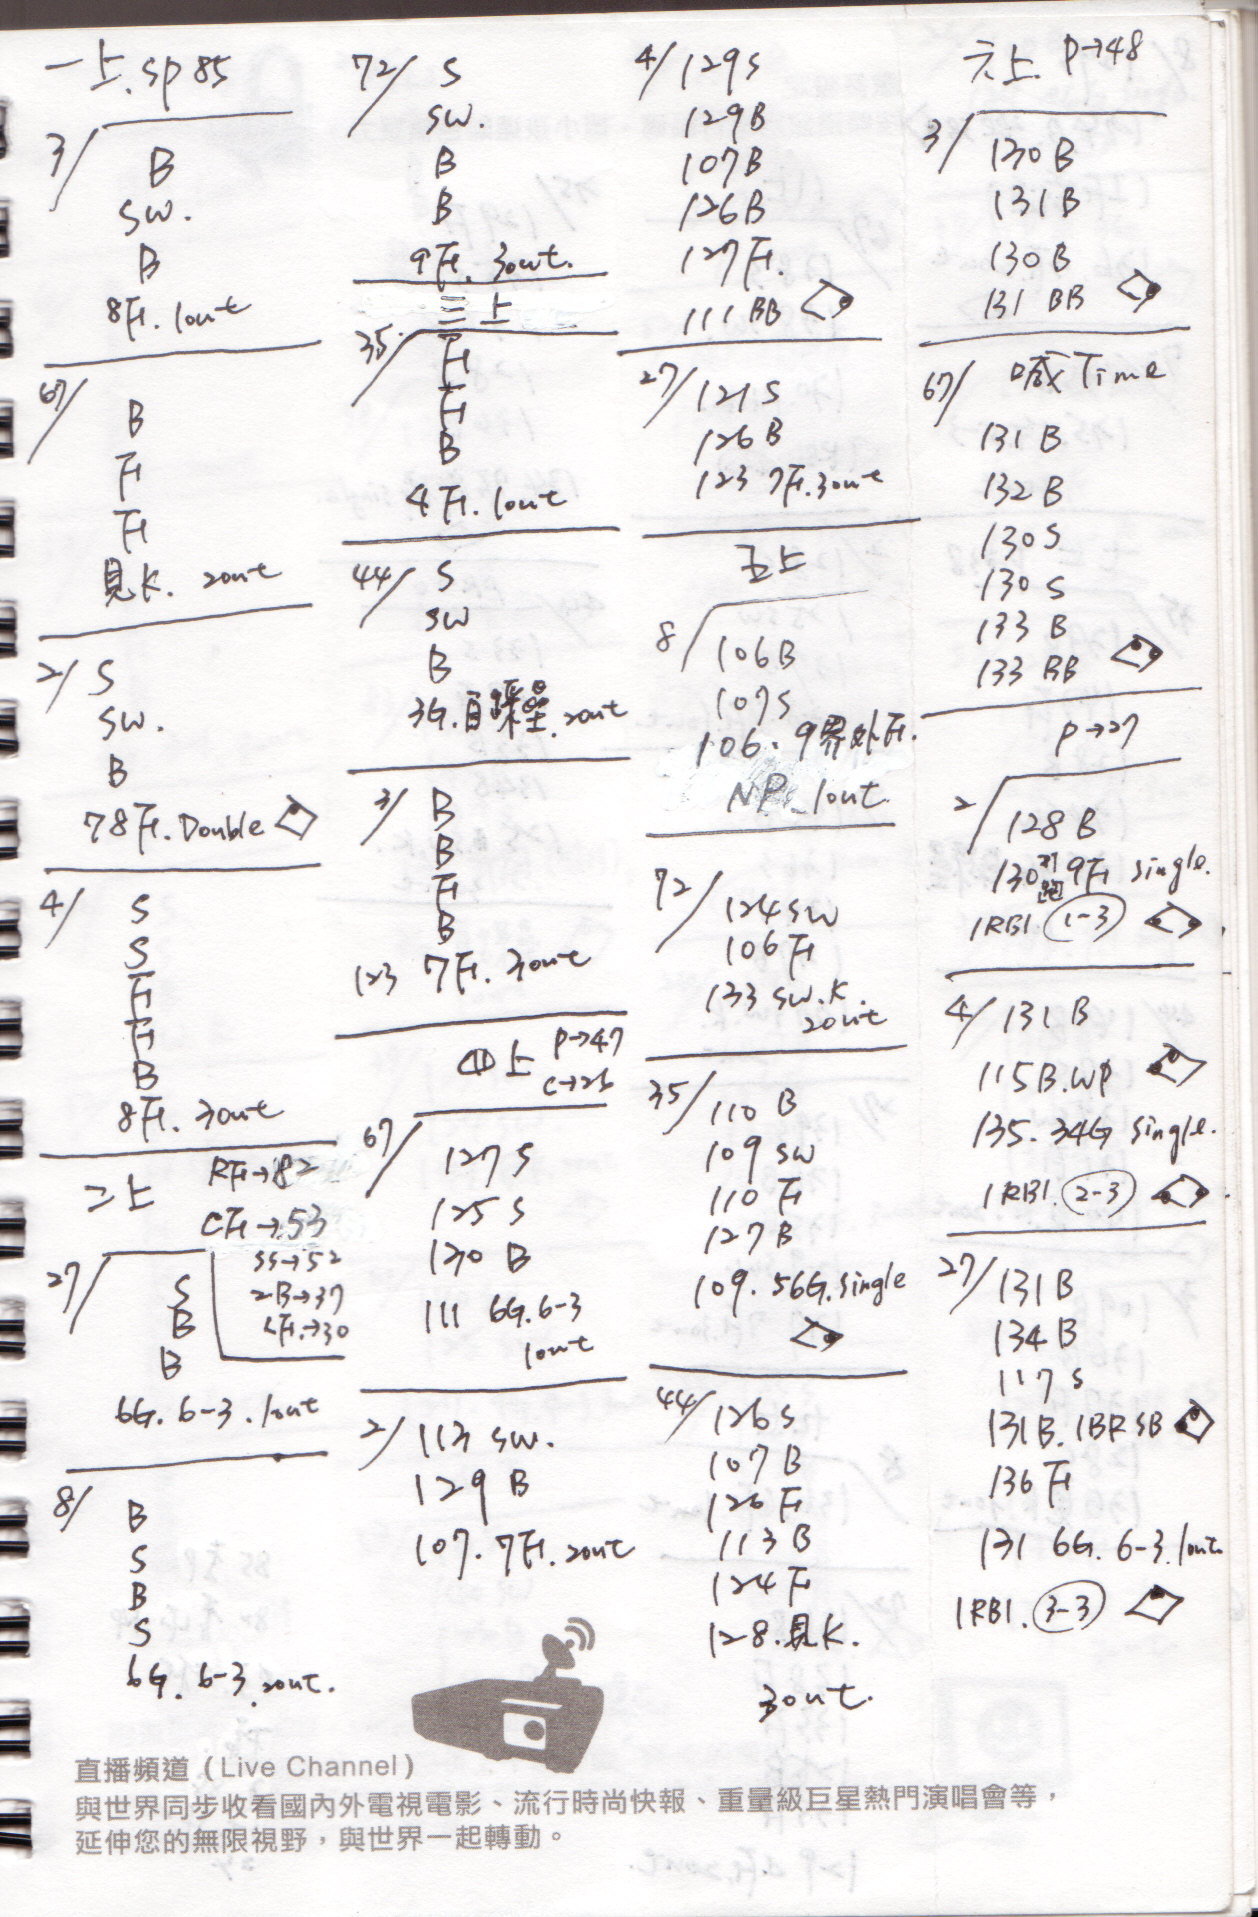 一上.SP85
3/
B
SW.
B
8F. 1out
67/
B
F
F
見K. 2out
2/ S
SW.
B
78F. Double
4/
S
S
F
F
B
8F. 3out
二上
RF→82
CF→53
SS→52
2B→37
LF.→30
27/
S
B
B
6G. 6-3. 1out
8/
B
S
B
S
6G. 6-3. 2out.
72/ S
SW.
B
B
9F. 3out.
三上
35/
F
F
B
4F. 1out
44/ S
SW
B
3G.自踩壘. 2out
3/ B
B
F
B
123 7F. 3out
四上 P→47
C→26
67/
127 S
125 S
130 B
111 6G. 6-3
1out
2/ 113 SW.
129 B
107. 7F. 2out
4/ 129 S
129B
107B
126B
127F.
111 BB
27/ 121 S
126 B
123 7F. 3out
五上
8/ 106B
107S
106. 9界外F.
NP 1out
72/ 124 SW
106 F
133 SW. K.
2out
35/ 110 B
109 SW
110 F
127 B
109. 56G. single
44/ 126 S
107 B
126 F
113 B
124 F
128. 見K.
3out.
六上. P→48
3/ 130 B
131 B
130 B
131 BB
67/ 喊Time
131 B
132 B
130 S
130 S
133 B
133 BB
P→27
2/ 128 B
130 打跑 9F single.
1RBI. 1-3
4/ 131 B
115B. WP
135. 34G single.
1RBI. 2-3
27/ 131 B
134 B
117 S
131B. 1BR SB
136 F
131 6G. 6-3. 1out
1RBI. 3-3
直播頻道（Live Channel）
與世界同步收看國內外電視電影、流行時尚快報、重量級巨星熱門演唱會等，
延伸您的無限視野，與世界一起轉動。